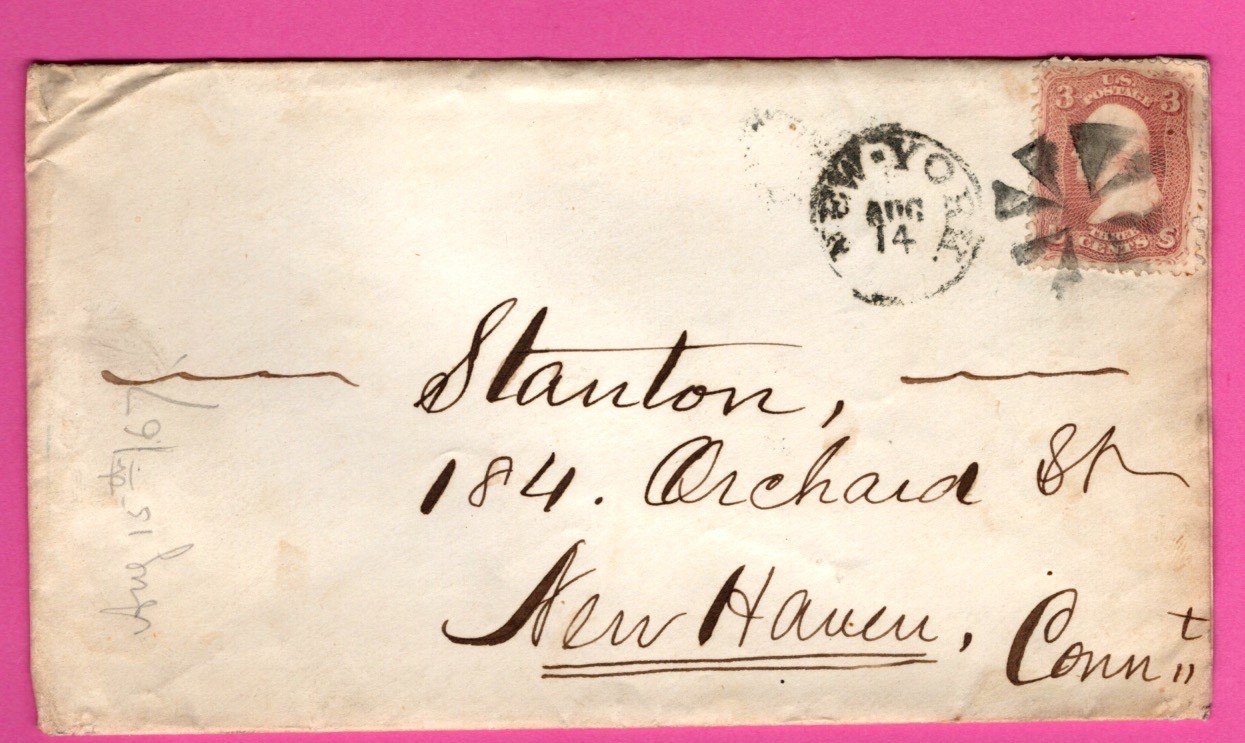 U.S.
POSTAGE
3 3
CENTS
NEW·YORK
AUG
14
Stanton,
184. Orchard St
New Haven, Connt
Aug 15th /67